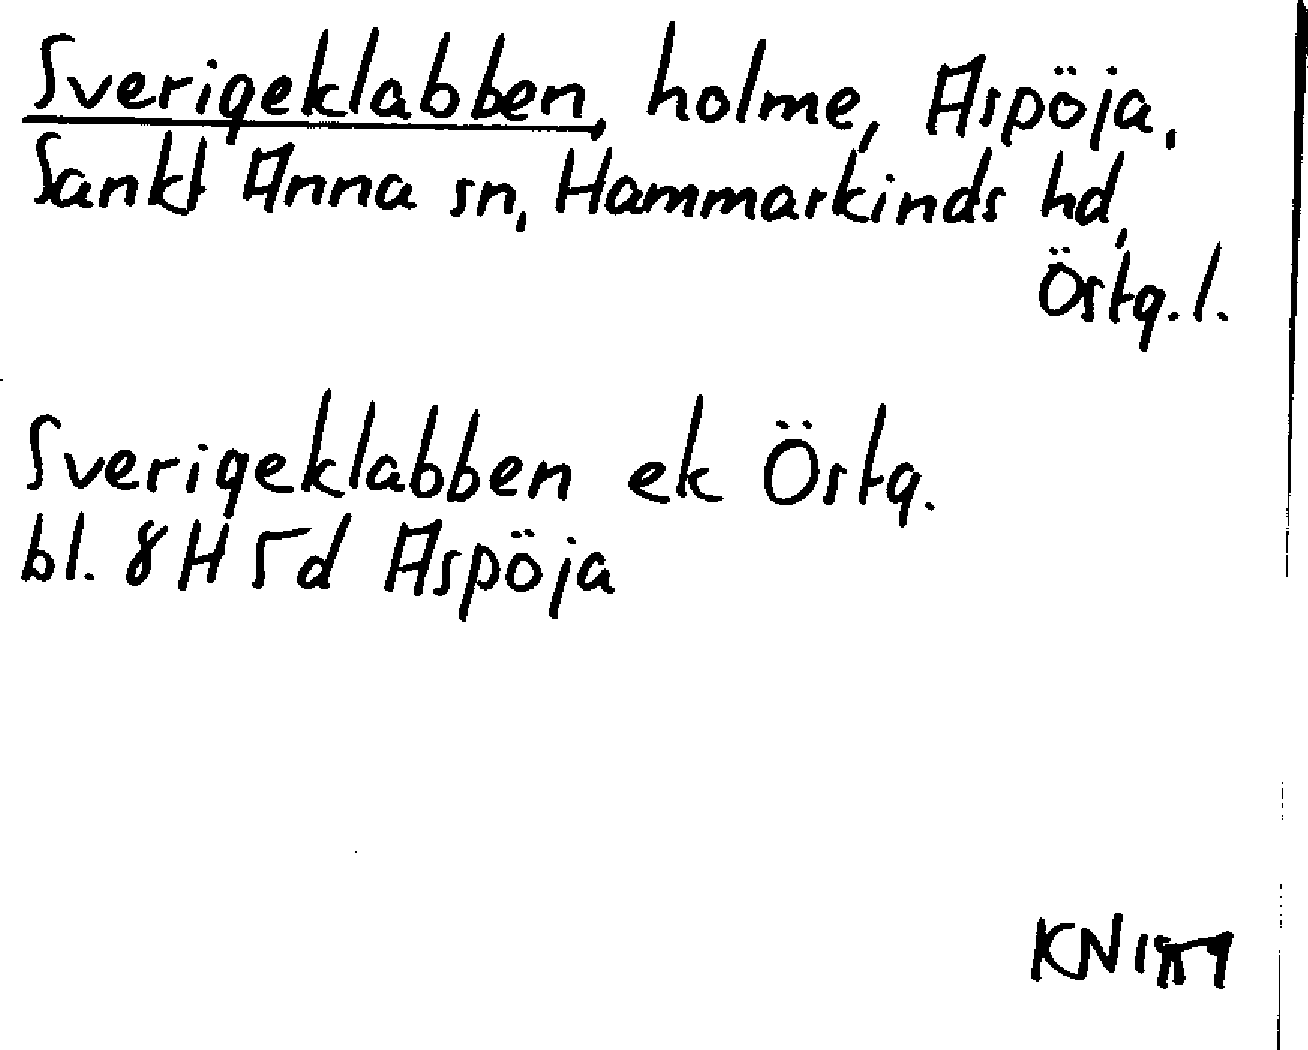 Sverigeklabben, holme, Aspöja,
Sankt Anna sn, Hammarkinds hd,
Östg. l.
Sverigeklabben ek Östg.
bl. 8H 5d Aspöja